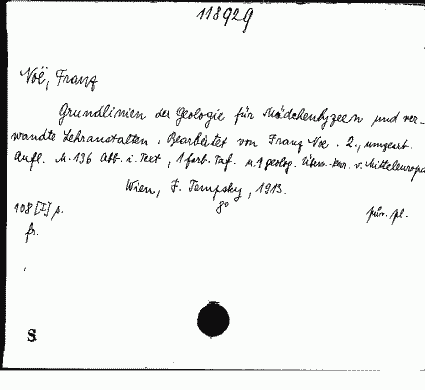 118929
Noë, Franz
Grundlinien der Geologie für Mädchenlyzeen und ver-
wandte Lehranstalten. Bearbeitet von Franz Noë. 2., umgearb.
Aufl. M. 136 Abb. i. Text, 1 farb. Taf. u. 1 geolog. Übers.-kar. v. Mitteleuropa
Wien, F. Tempsky, 1913.
108 [I] p. 8° pův. pl.
fr.
S